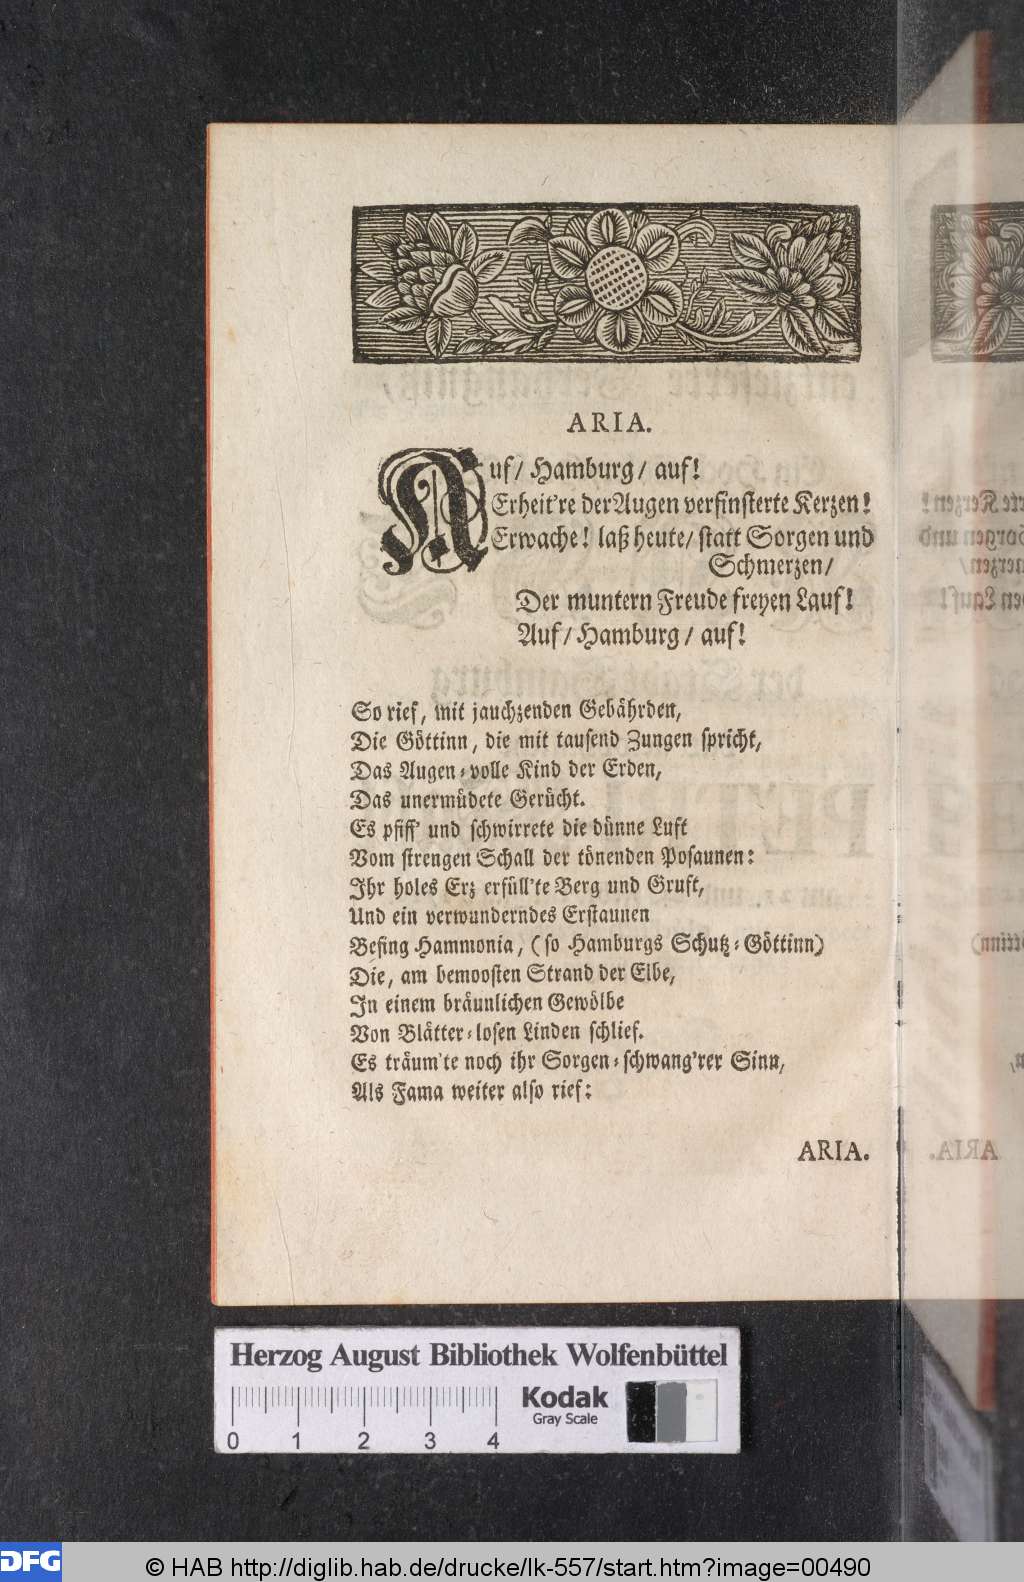 ARIA.
Auf/ Hamburg/ auf!
Erheit're der Augen verfinsterte Kerzen!
Erwache! laß heute/ statt Sorgen und
Schmerzen/
Der muntern Freude freyen Lauf!
Auf/ Hamburg/ auf!
So rief, mit jauchzenden Gebährden,
Die Göttinn, die mit tausend Zungen spricht,
Das Augen-volle Kind der Erden,
Das unermüdete Gerücht.
Es pfiff' und schwirrete die dünne Luft
Vom strengen Schall der tönenden Posaunen:
Ihr holes Erz erfüll'te Berg und Gruft,
Und ein verwunderndes Erstaunen
Befing Hammonia, (so Hamburgs Schutz-Göttinn)
Die, am bemoosten Strand der Elbe,
In einem bräunlichen Gewölbe
Von Blätter-losen Linden schlief.
Es träum'te noch ihr Sorgen-schwang'rer Sinn,
Als Fama weiter also rief:
ARIA.
Herzog August Bibliothek Wolfenbüttel
Kodak
Gray Scale
0 1 2 3 4
DFG
© HAB http://diglib.hab.de/drucke/lk-557/start.htm?image=00490